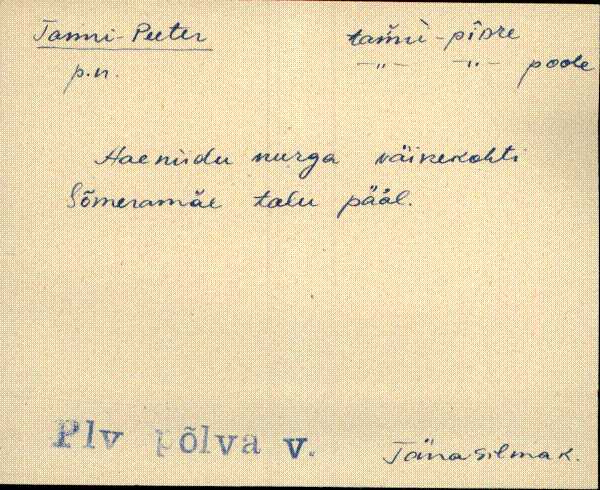 Tamni-Peeter tam̆nì-pīdre
p.n. -"- -"- poole
Haeniidu nurga väikekohti
Sõmeramäe talu pääl.
Plv põlva v. Tänasilma k.